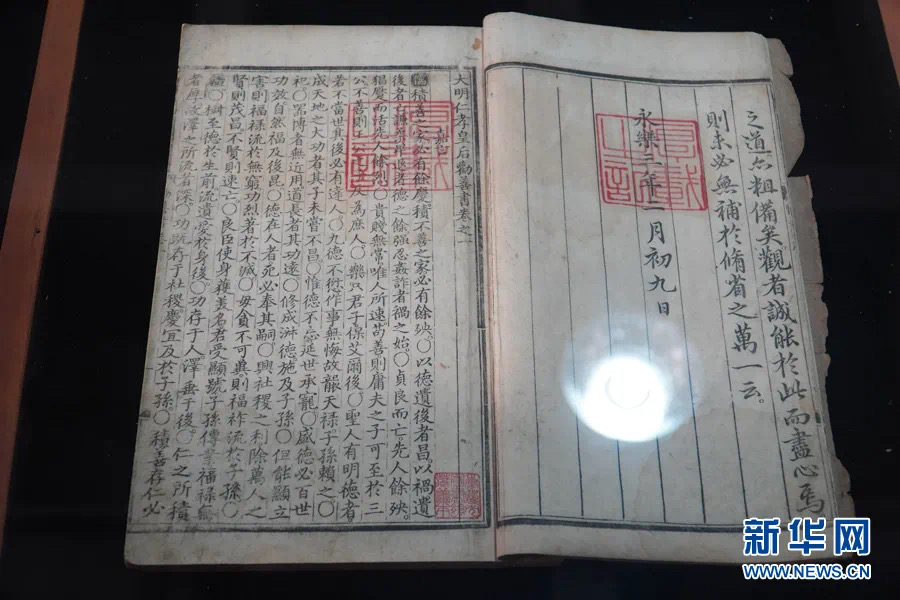 之道亦粗備矣觀者誠能於此而盡心焉
則未必無補於脩省之萬一云。
永樂三年二月初九日
大明仁孝皇后勸善書卷之一
嘉言
積善之家必有餘慶積不善之家必有餘殃○以德遺後者昌以禍遺
後者亡謙柔卑退者德之餘強忍姦詐者禍之始○貞良而亡先人餘殃
猖蹶而活先人餘烈○貴賤無常唯人所速苟善則庸夫之子可至於三
公不善則王公反為庶人○樂只君子保艾爾後○聖人有明德者
若不當世其後必有達人○九德不愆作事無悔故襲天祿子孫賴之○
成天地之大功者其子未嘗不昌○惟德不忘延世承寵○盛德必百世
祀○器博者無近用道長者其功遠○修成淋德施及子孫○但能顯立
功效自然福及後昆○德在人者死必奉其嗣○興社稷之利除萬人之
害則福祿流於無窮功烈著於不滅○毋貪不可冀則福祚流於子孫○
賢則茂昌不賢則速亡○良臣使身獲美名君受顯號子孫傳業福祿無
疆○樹至德於生前流遺愛於身後○功存于人澤垂于後○仁之所積
者厚故澤之所流者深○功既存于社稷慶宜及於子孫○積善存仁必
新华网
WWW.NEWS.CN